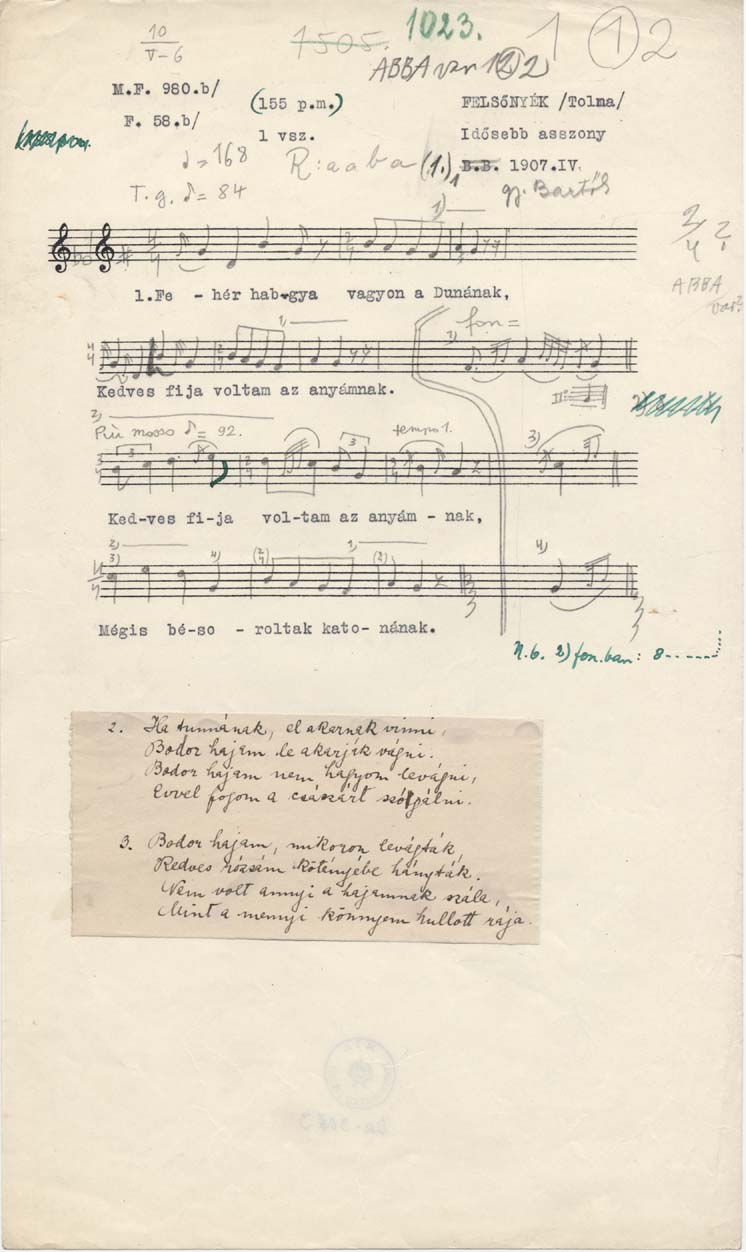 10
V-6
1505.
1023.
1 1 2
ABBA var 12 2
M.F. 980.b/
(155 p.m.)
FELSŐNYÉK /Tolna/
F. 58.b/
1 vsz.
Idősebb asszony
♩=168
R: a a b a (1.)
B.B. 1907.IV.
T.g. ♪= 84
gy. Bartók
1)
2/4 ?
ABBA
var?
1.Fe - hér hab-gya vagyon a Dunának,
1)
fon=
Kedves fija voltam az anyámnak.
2)
Più mosso ♪= 92.
tempo 1.
3)
Ked-ves fi-ja vol-tam az anyám - nak,
2)
3)
4)
1)
(2)
4)
Mégis bé-so - roltak kato- nának.
N.b. 2) fon.ban: 8-----
2. Ha tunnának, el akarnak vinni,
Bodor hajam le akarják vágni.
Bodor hajam nem hagyom levágni,
Evvel fogom a császárt szolgálni.
3. Bodor hajam, mikoron levágták,
Kedves rózsám kötényébe hányták.
Nem volt annyi a hajamnak szála,
Mint a mennyi könnyem hullott rája.